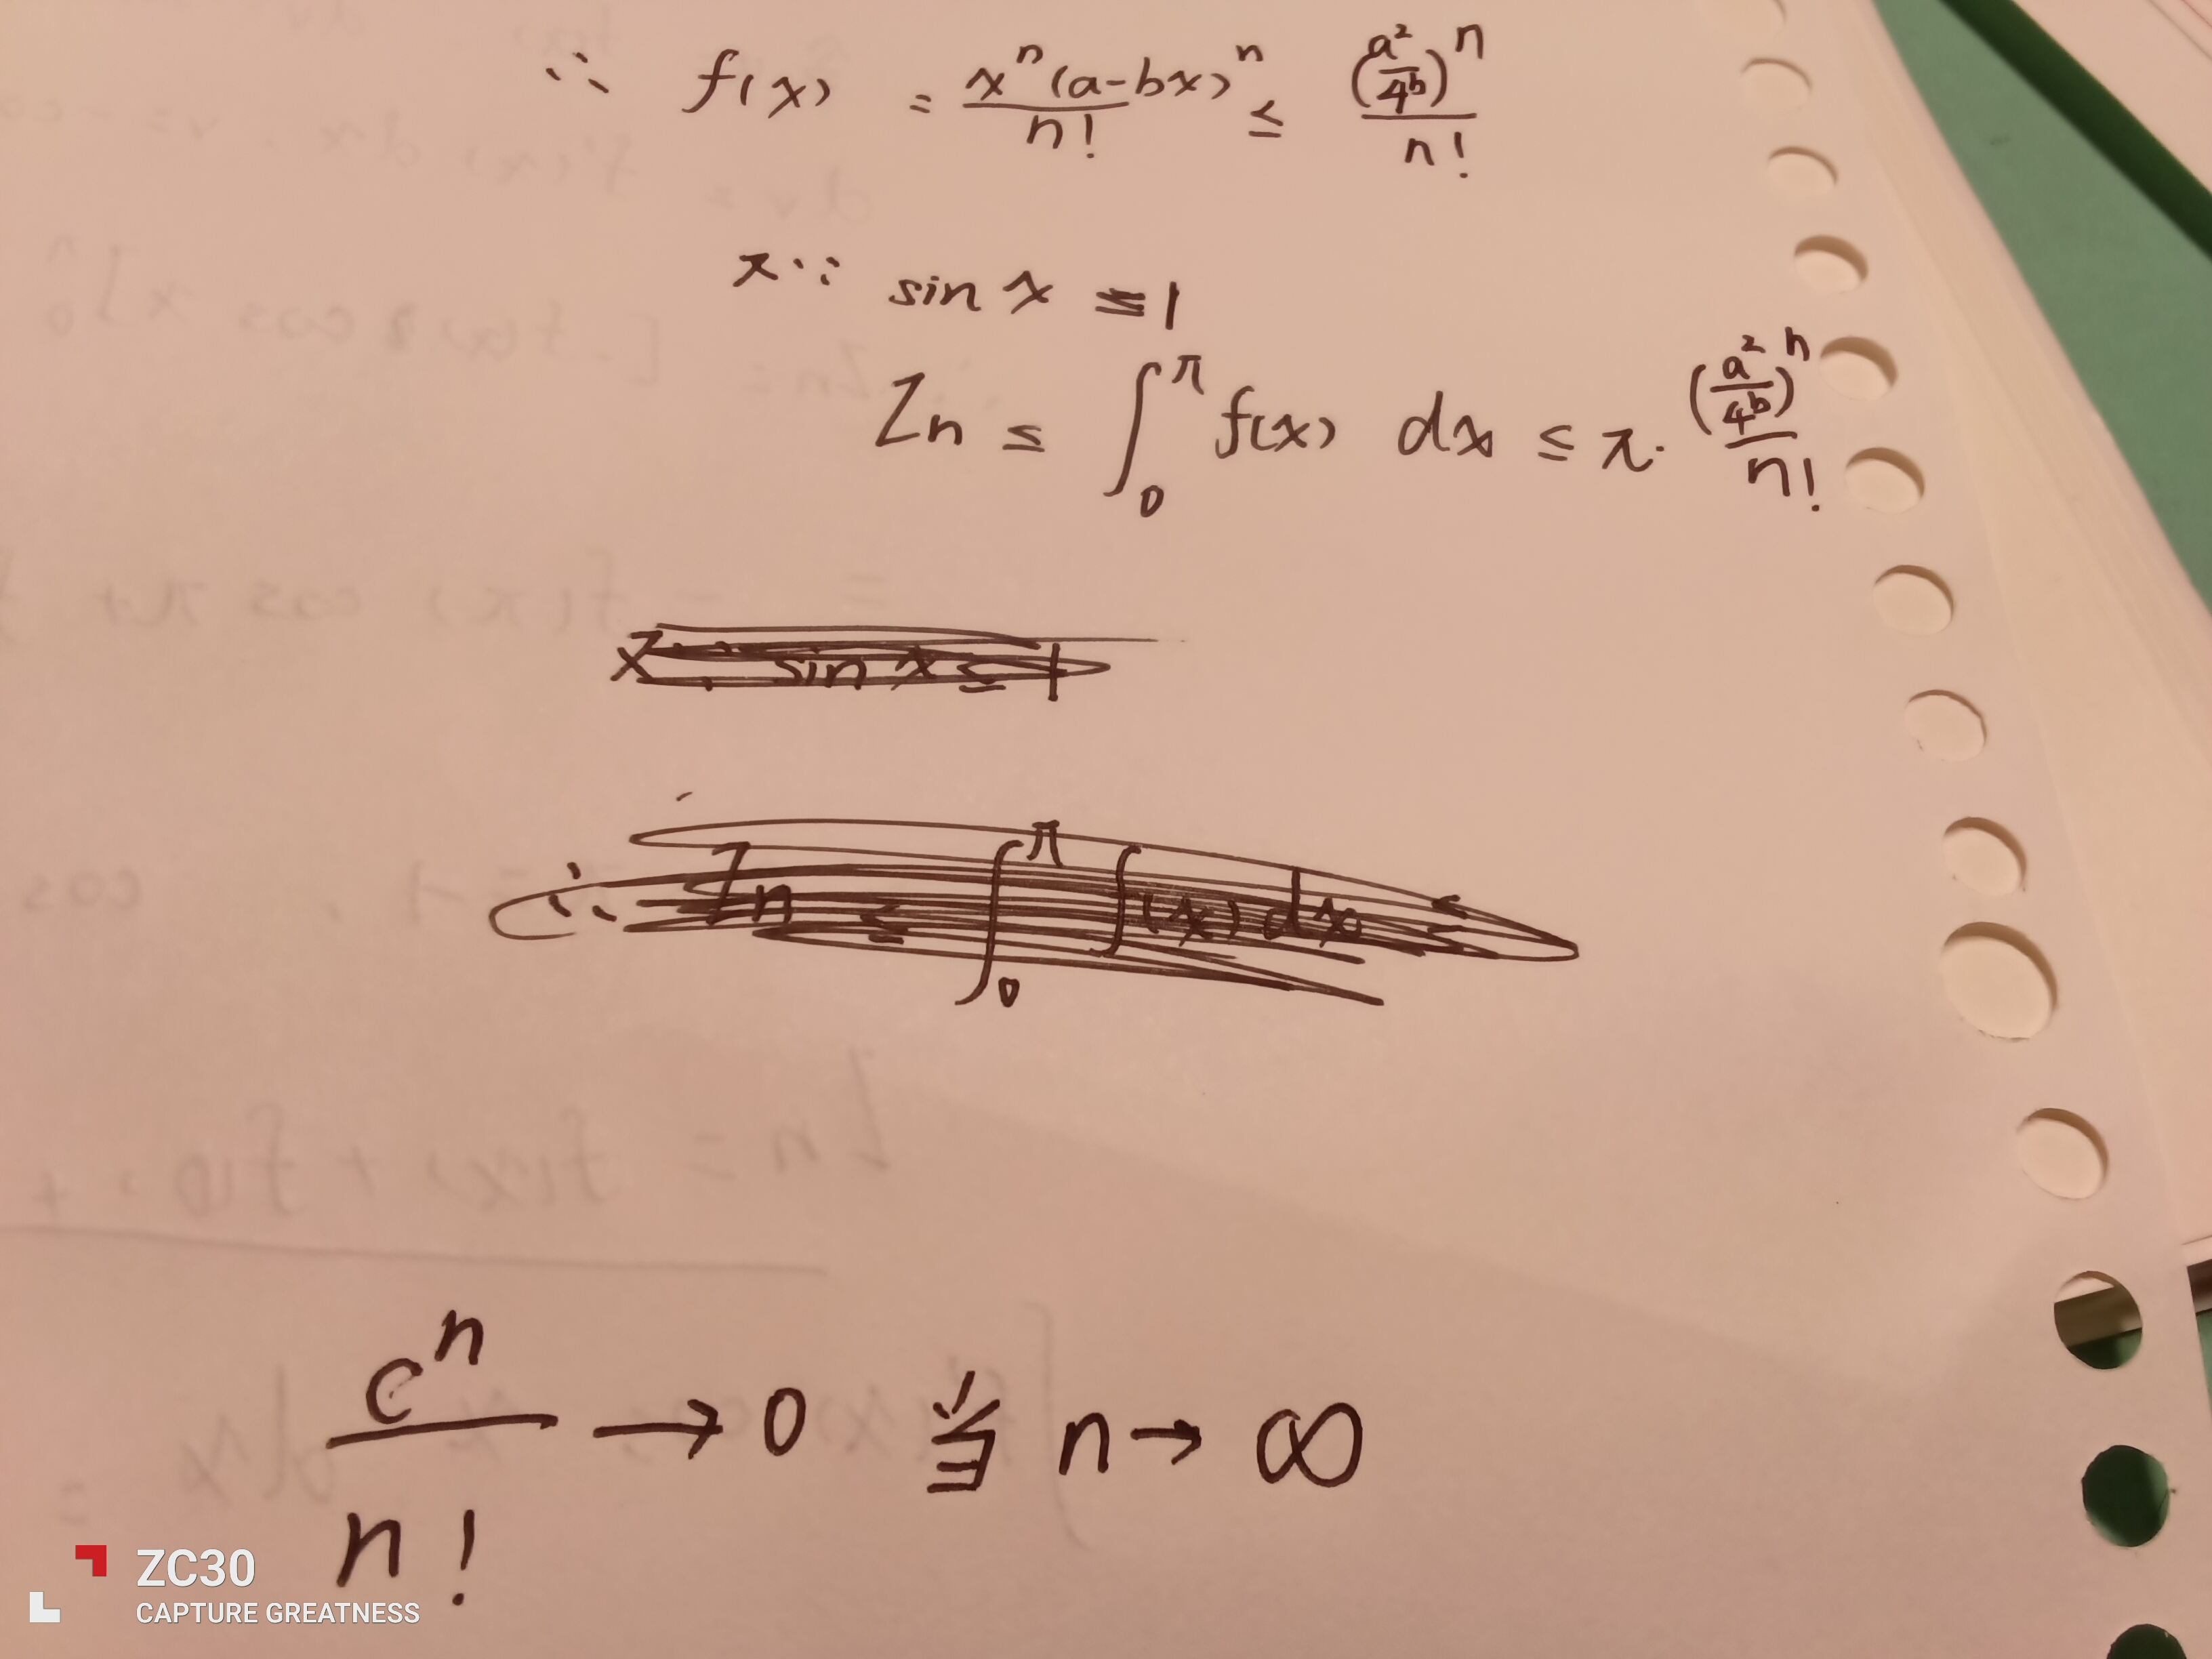 ∴ f(x) = x^n(a-bx)^n / n! ≤ (a²/4b)^n / n!
x∵ sin x ≤ 1
In ≤ ∫_0^π f(x) dx ≤ π· (a²/4b)^n / n!
X ∵ sin x ≤ 1
∴ In ≤ ∫_0^π f(x) dx ≤
c^n / n! → 0 当 n → ∞
ZC30
CAPTURE GREATNESS